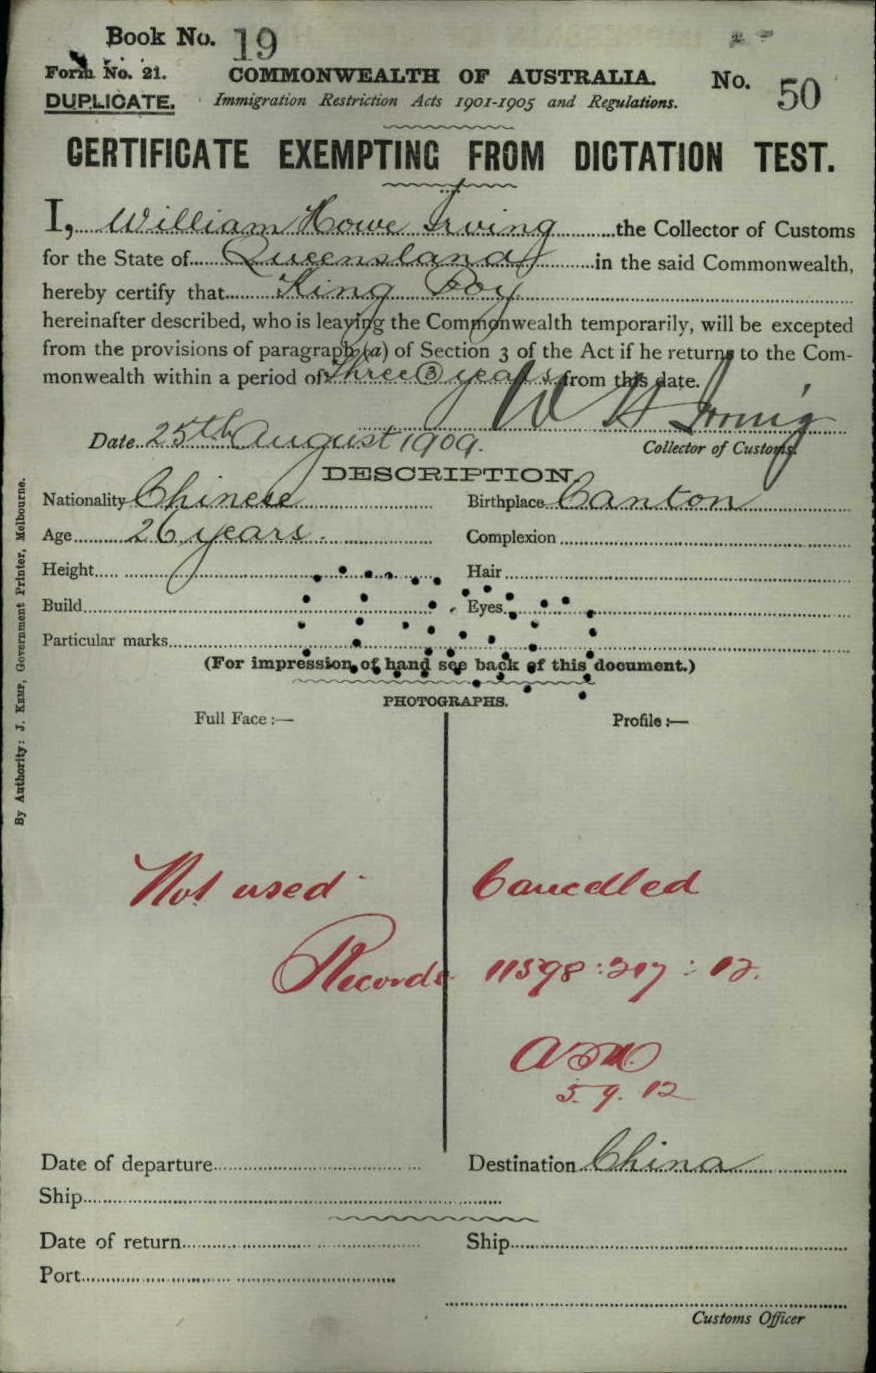 Book No. 19
Form No. 21. COMMONWEALTH OF AUSTRALIA. No. 50
DUPLICATE. Immigration Restriction Acts 1901-1905 and Regulations.
CERTIFICATE EXEMPTING FROM DICTATION TEST.
I, William Howe Irving the Collector of Customs
for the State of Queensland in the said Commonwealth,
hereby certify that King Foy
hereinafter described, who is leaving the Commonwealth temporarily, will be excepted
from the provisions of paragraph (a) of Section 3 of the Act if he returns to the Com-
monwealth within a period of three (3) years from this date.
W H Irving
Date 25th August 1909. Collector of Customs.
DESCRIPTION.
Nationality Chinese Birthplace Canton
Age 26 years. Complexion
Height Hair
Build Eyes
Particular marks
(For impression of hand see back of this document.)
PHOTOGRAPHS.
Full Face :— Profile :—
Not used Cancelled
Records 11598 : 217 : 12.
5. 9. 12
Date of departure Destination China
Ship
Date of return Ship
Port
Customs Officer
By Authority: J. Kemp, Government Printer, Melbourne.